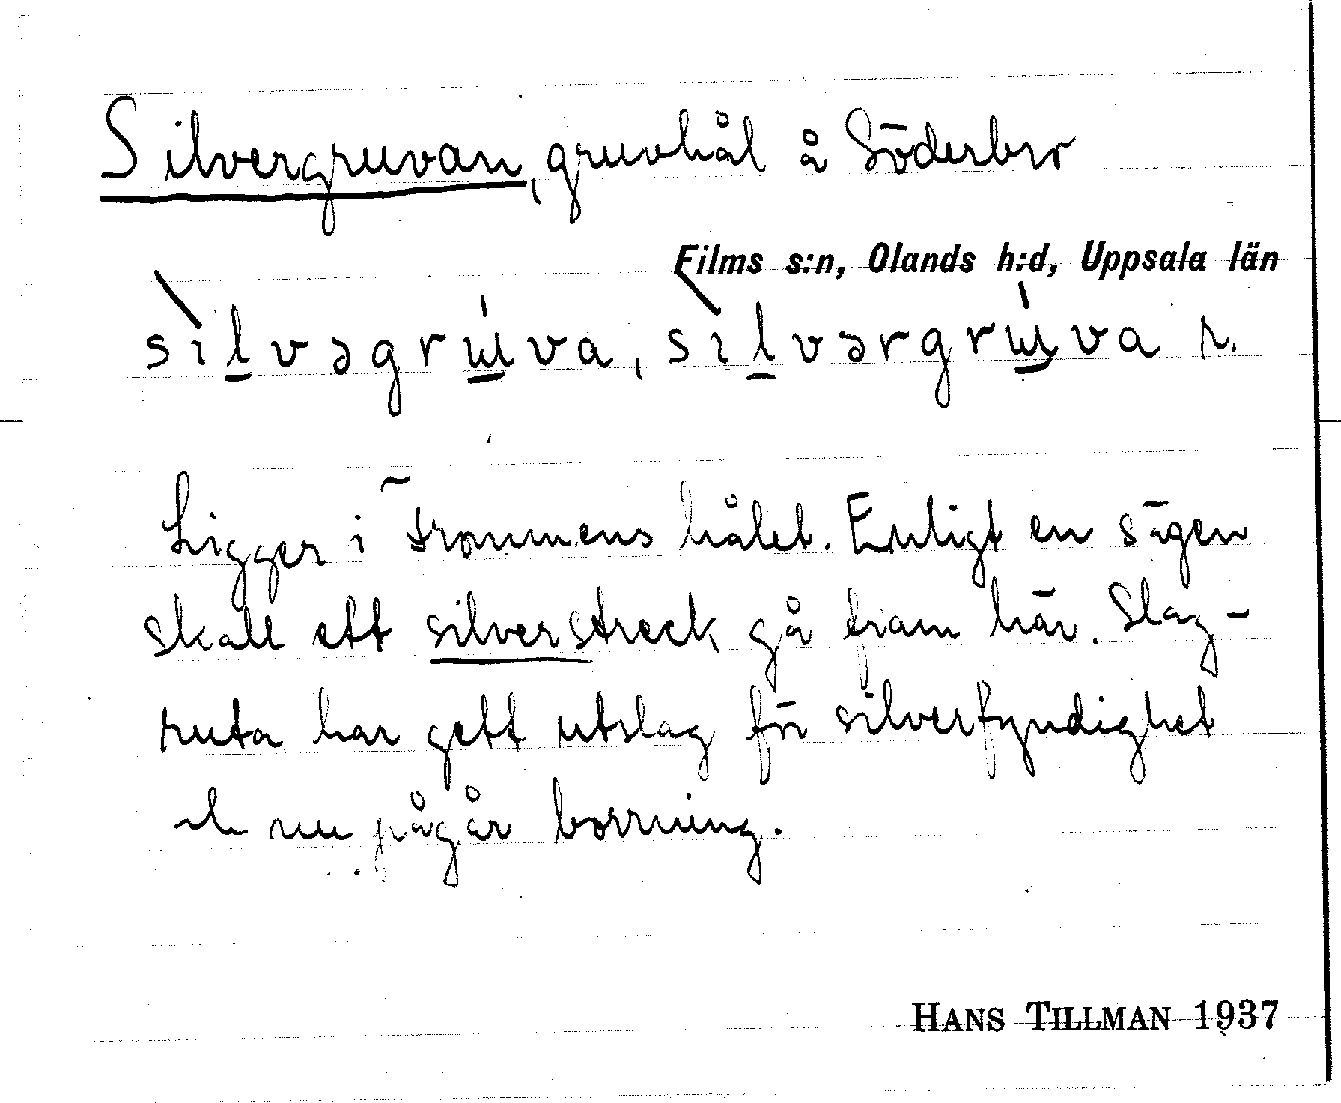 Silvergruvan, gruvhål å Söderbro
Films s:n, Olands h:d, Uppsala län
sìlvəgrúva, sìlvərgrúva r.
Ligger i Trommens hålet. Enligt en sägen
skall ett silverstreck gå fram här. Slag-
ruta har gett utslag för silverfyndighet
och nu pågår borrning.
HANS TILLMAN 1937